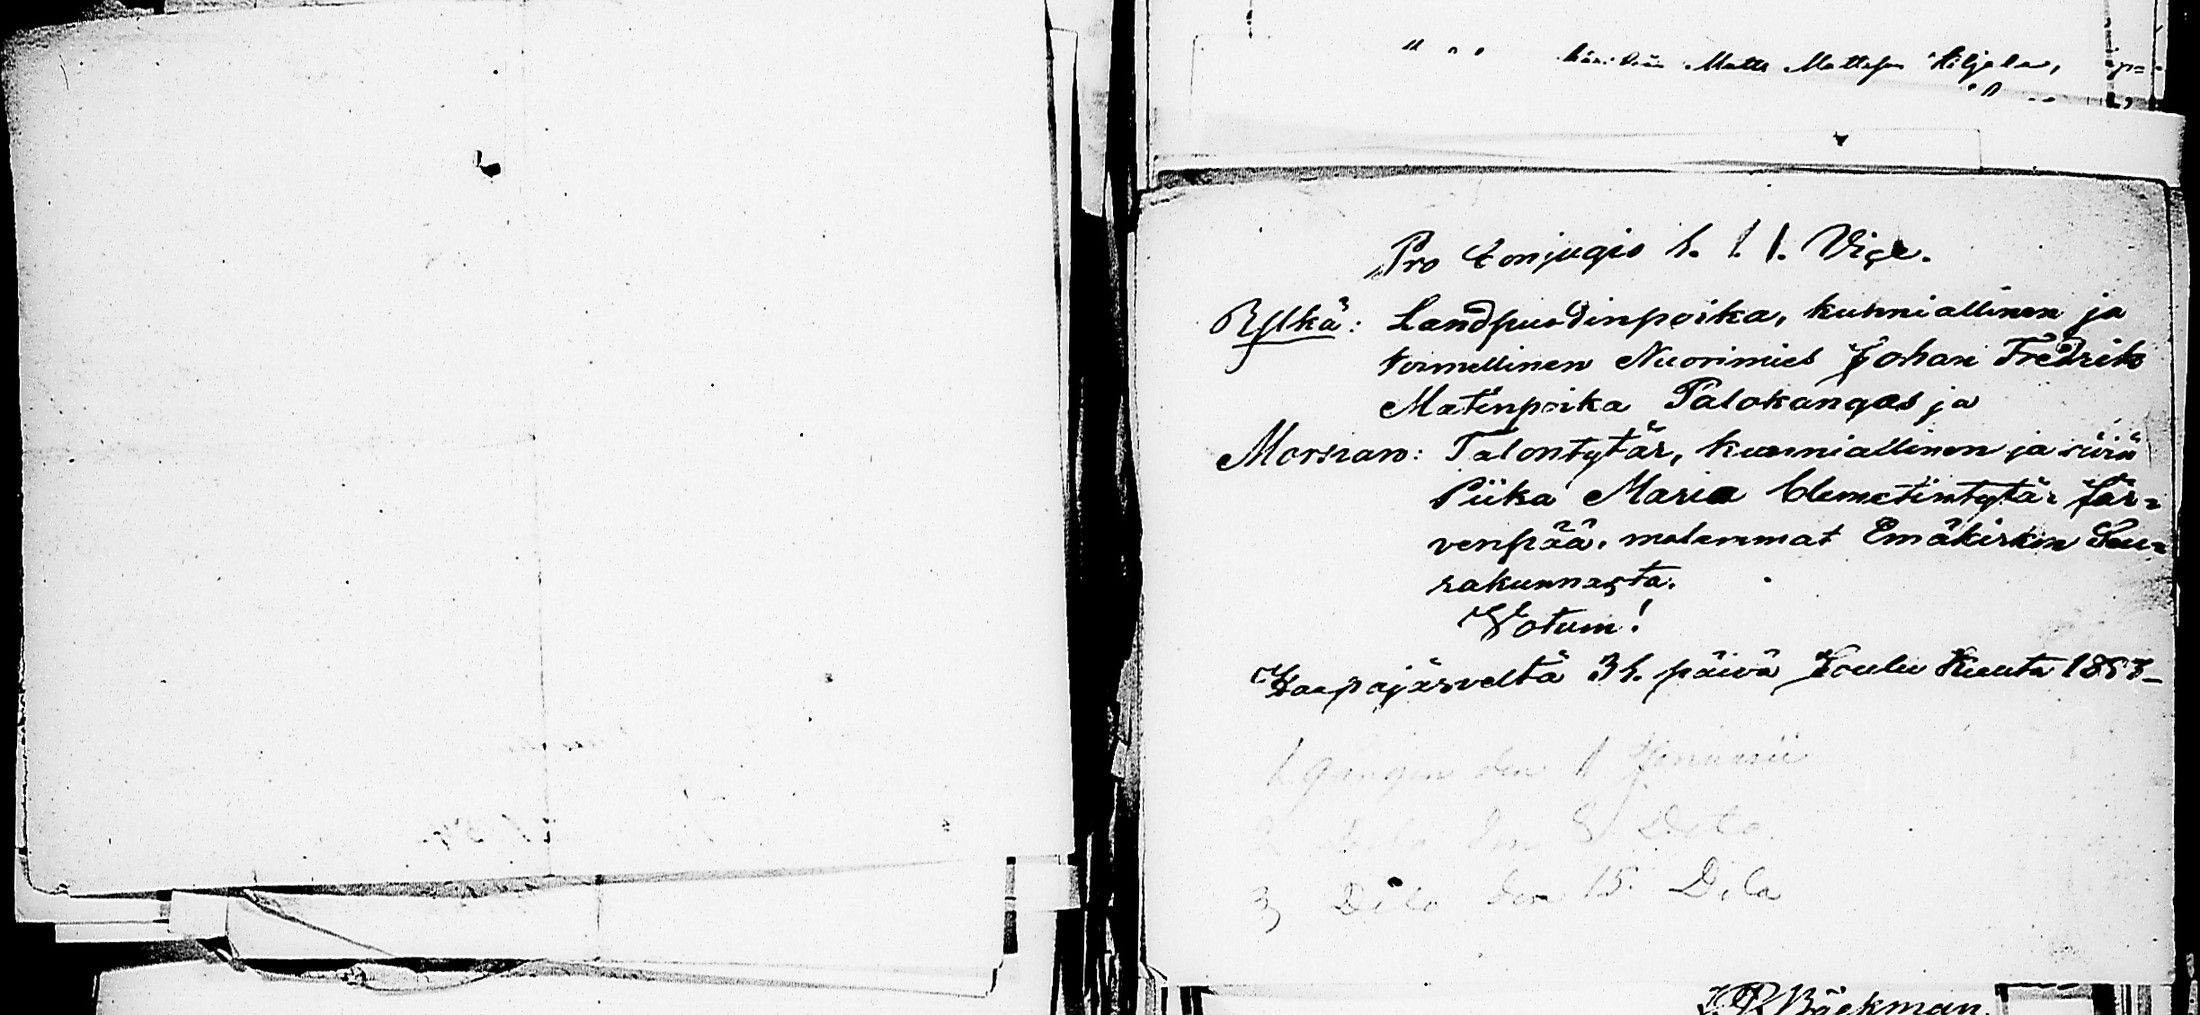 " " " Matts Mattsson Kiljala,
Pro Conjugio h. l. 1. Viçe.
Ylkä: Landpuodinpoika, kunniallinen ja
toimellinen Nuorimies Johan Fredrik
Matinpoika Palokangas ja
Morsian: Talontytär, kunniallinen ja siviä
Piika Maria Clemetintytär Jär=
venpää, molemmat Emäkirkon Seu=
rakunnasta.
Votum!
Haapajärveltä 31. päivä Joulu Kuuta 1853_
1 gången den 1 Januarii
2 Dito den 8 Dito.
3 Dito den 15. Dito
Bäckman.